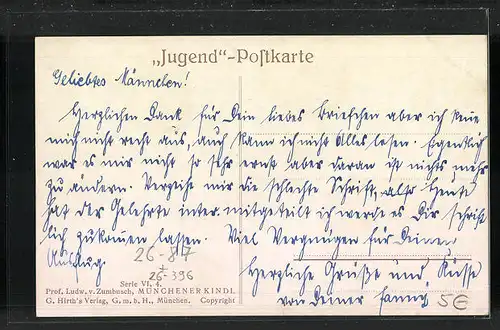 „Jugend“-Postkarte
Geliebtes Männchen!
Herzlichen Dank für Dein liebes Briefchen aber ich kenne
mich nicht recht aus, auch kann ich nicht Alles lesen. Eigentlich
war es mir nicht so sehr ernst aber daran ist nichts mehr
zu ändern. Verzeihe mir die schlechte Schrift, also heute
hat der Gelehrte mitgeteilt ich werde es Dir schrift
lich zukomen lassen. Viel Vergnügen für Deinen
Ausflug.
26-87
26-396
Herzliche Grüße und Küsse
von Deiner Fanny
5€
Serie VI, 4.
Prof. Ludw. v. Zumbusch, MÜNCHENER KINDL
G. Hirth's Verlag, G. m. b. H., München. Copyright